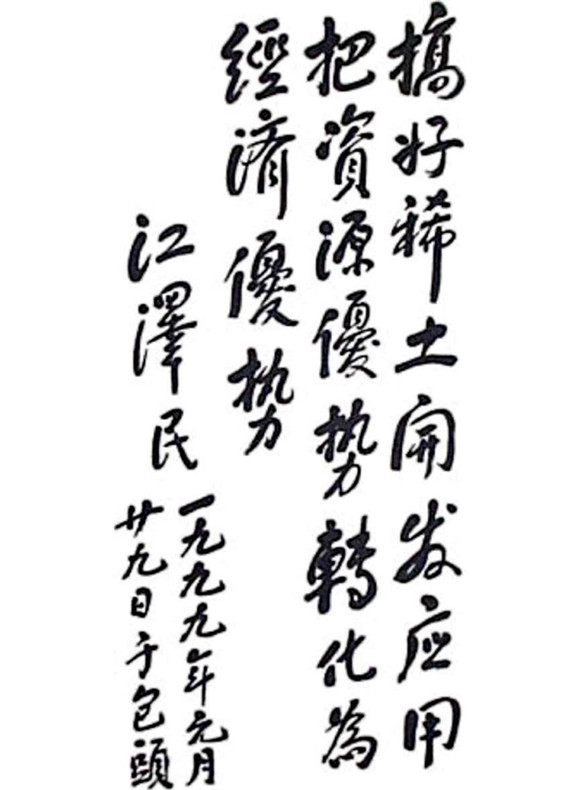 搞好稀土開发应用
把資源優势轉化為
經濟優势
江澤民
一九九九年元月
廿九日于包頭